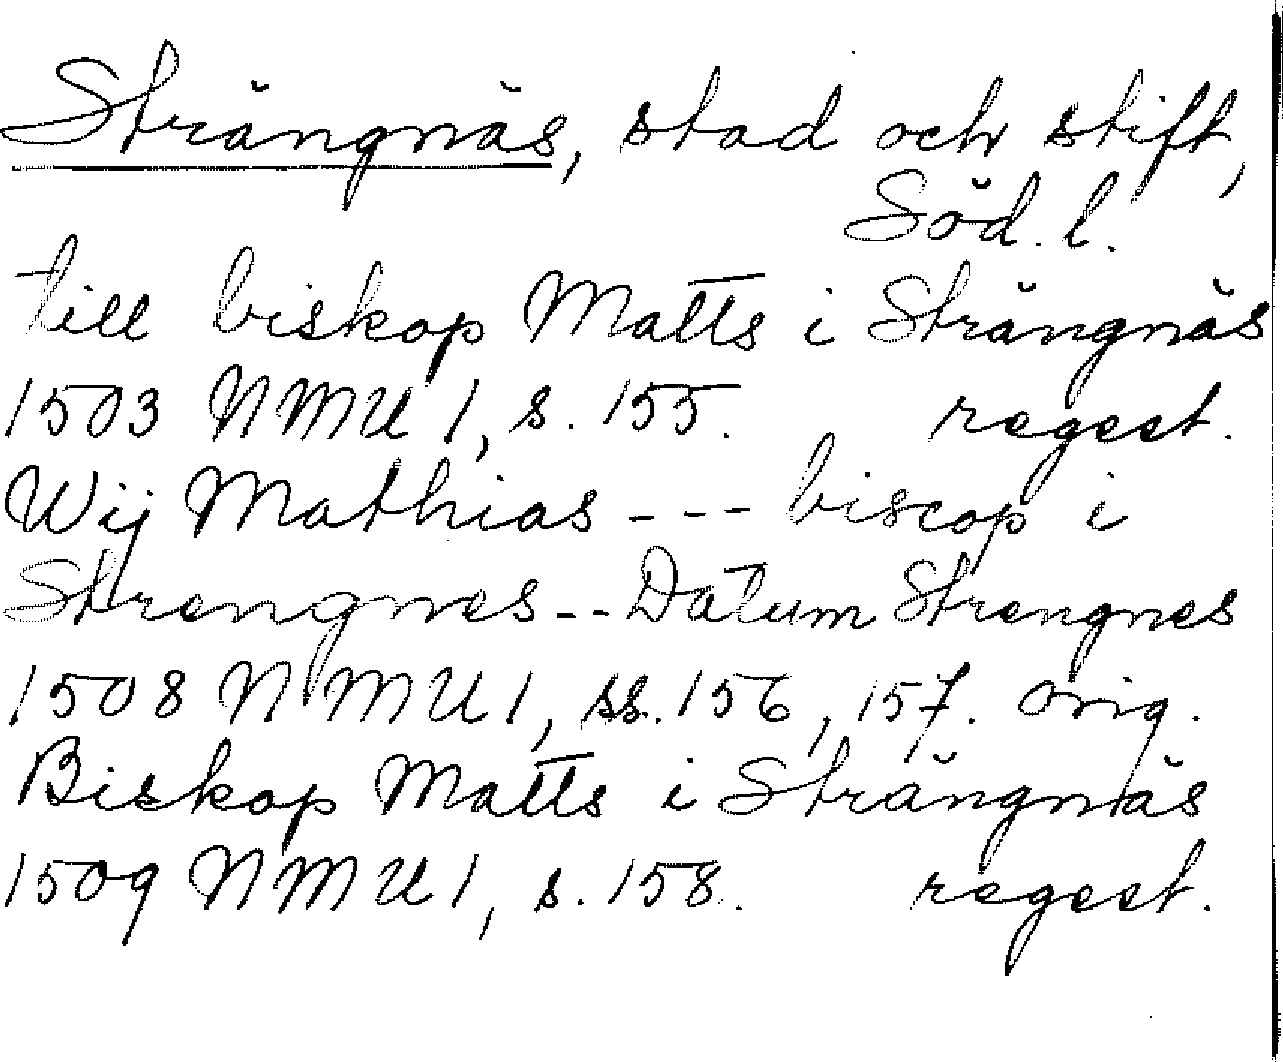 Strängnäs, stad och stift,
Söd. l.
till biskop Matts i Strängnäs
1503 NMU 1, s. 155. regest.
Wij Mathias --- biscop i
Strengnes -- Datum Strengnes
1508 NMU 1, ss. 156, 157. orig.
Biskop Matts i Strängnäs
1509 NMU 1, s. 158. regest.